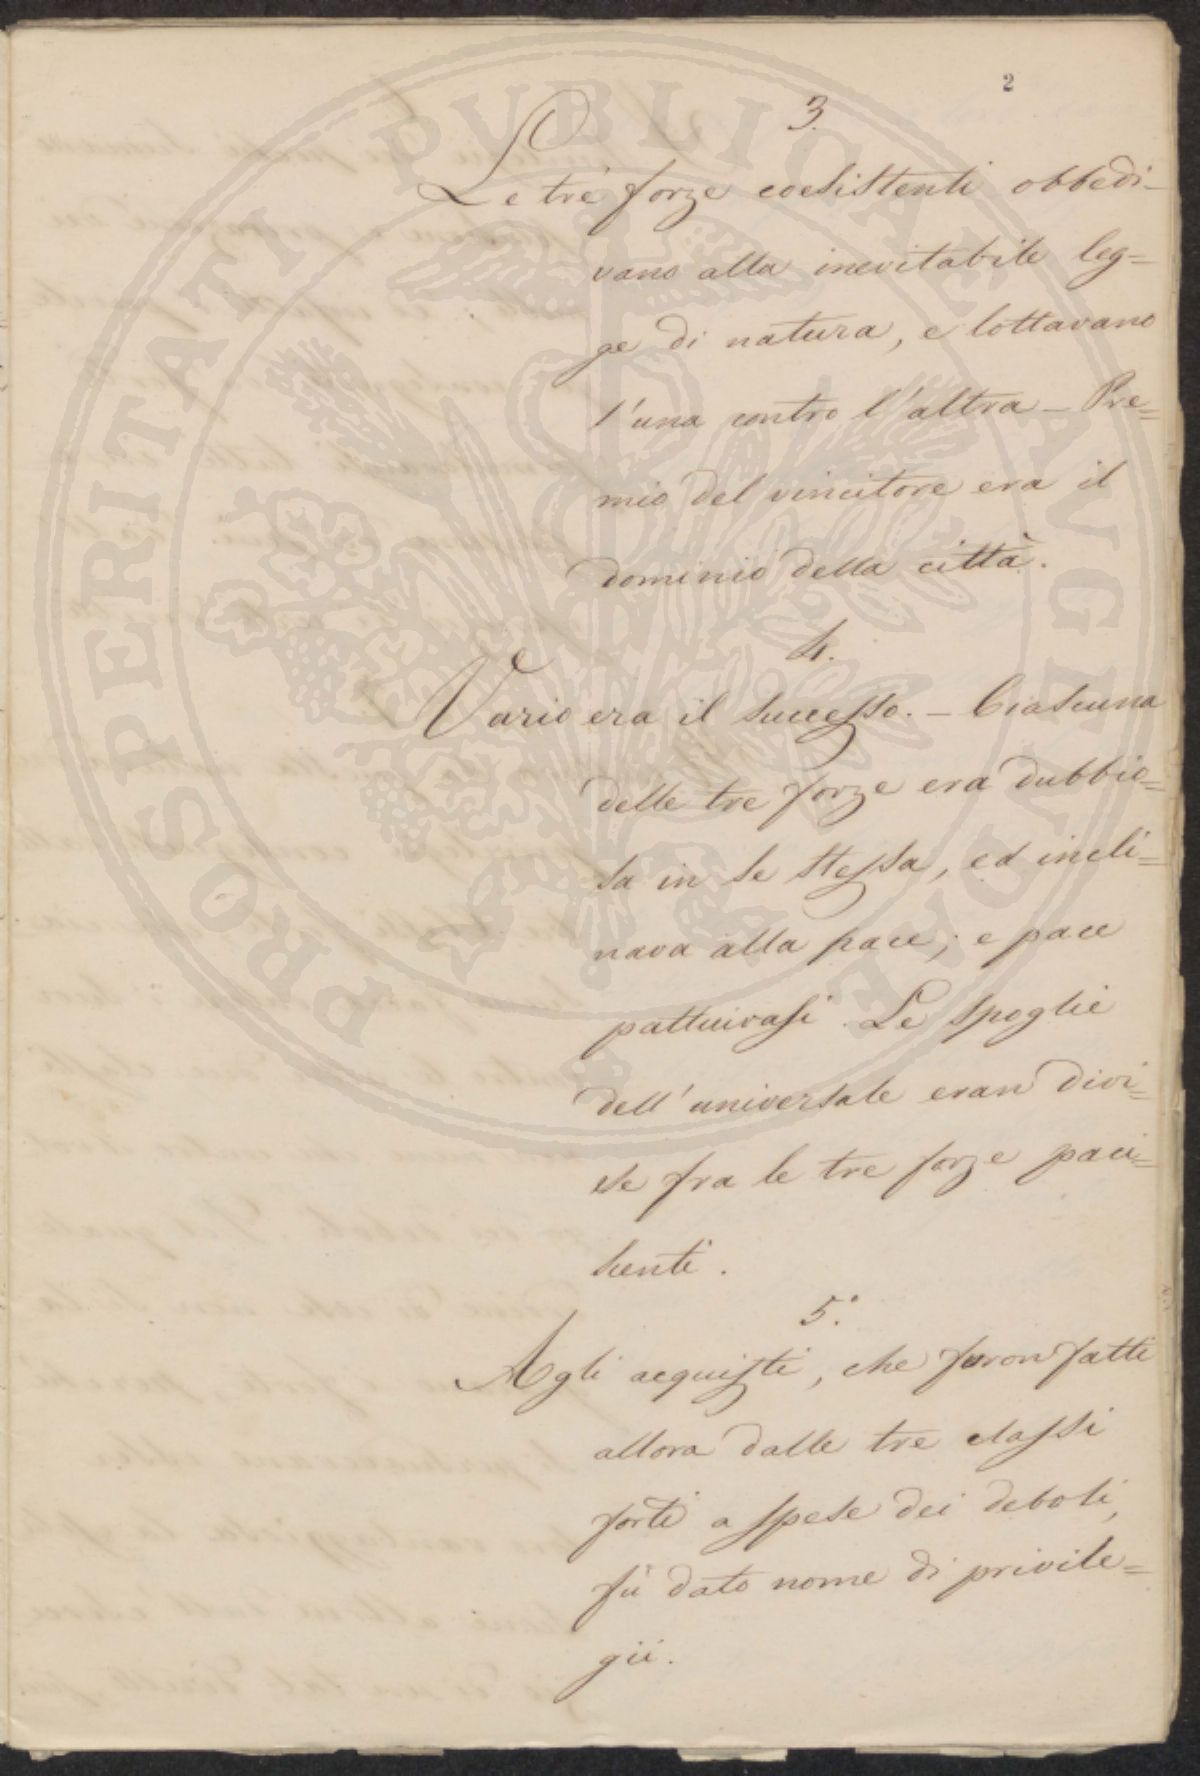 2
3.
Le tré forze coesistenti obbedi-
vano alla inevitabile leg=
ge di natura, e lottavano
l'una contro l'altra - Pre=
mio del vincitore era il
dominio della città.
4.
Vario era il successo. - Ciascuna
delle tre forze era dubbio=
sa in se stessa, ed incli=
nava alla pace; e pace
pattuivasi. Le spoglie
dell'universale eran divi=
se fra le tre forze paci=
scenti.
5.°
Agli acquisti, che furon fatti
allora dalle tre classi
forti a spese dei deboli,
fù dato nome di privile=
gii.
PROSPERITATI PUBLICAE AUGENDAE